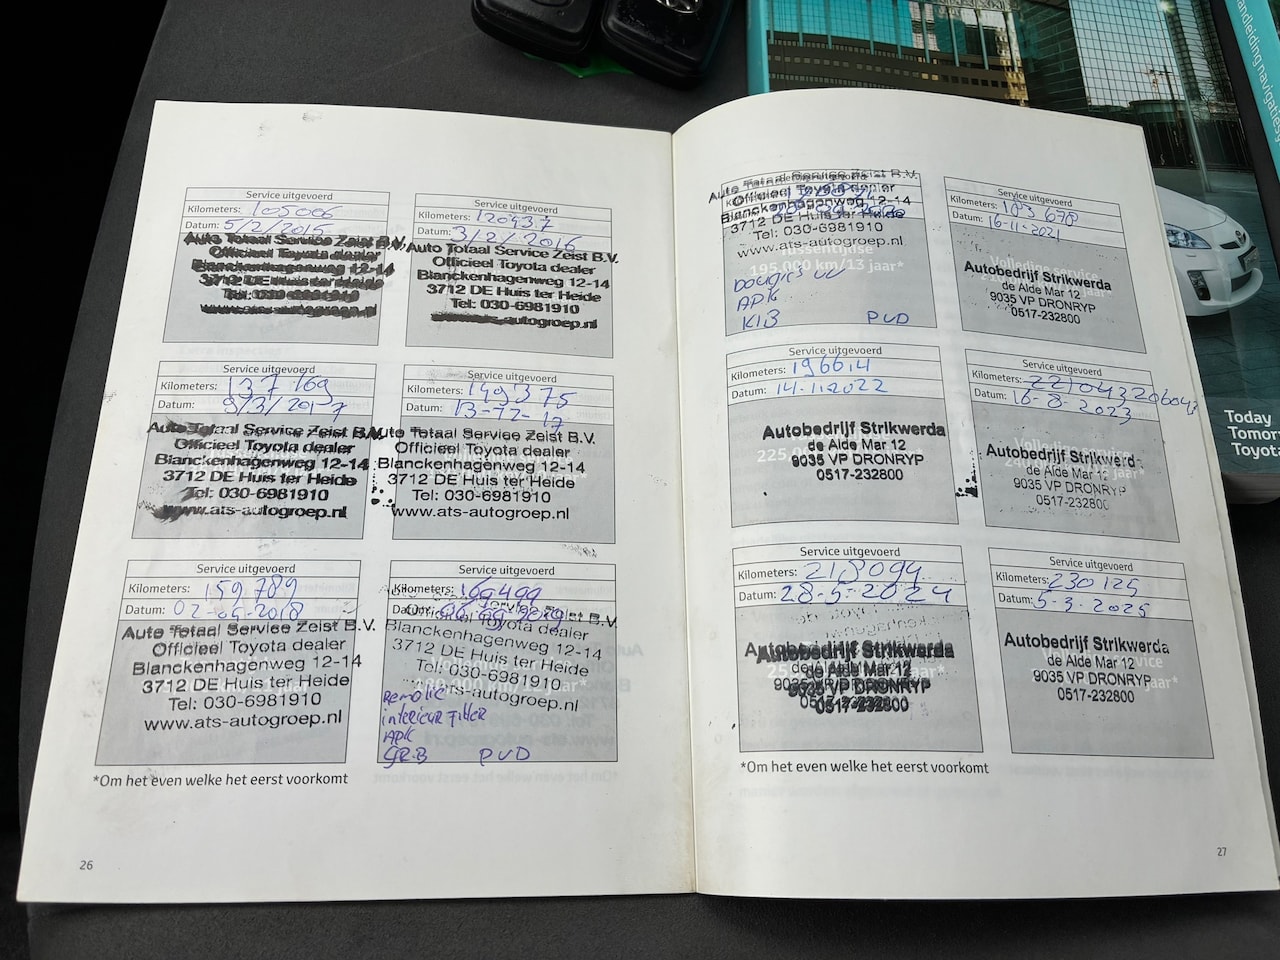 Service uitgevoerd
Kilometers: 105006
Datum: 5/2/2015
Auto Totaal Service Zeist B.V.
Officieel Toyota dealer
Blanckenhagenweg 12-14
3712 DE Huis ter Heide
Tel: 030-6981910
www.ats-autogroep.nl
Service uitgevoerd
Kilometers: 120437
Datum: 3/2/2016
Auto Totaal Service Zeist B.V.
Officieel Toyota dealer
Blanckenhagenweg 12-14
3712 DE Huis ter Heide
Tel: 030-6981910
www.ats-autogroep.nl
Service uitgevoerd
Kilometers: 137169
Datum: 9/3/2017
Auto Totaal Service Zeist B.V.
Officieel Toyota dealer
Blanckenhagenweg 12-14
3712 DE Huis ter Heide
Tel: 030-6981910
www.ats-autogroep.nl
Service uitgevoerd
Kilometers: 149375
Datum: 13-12-17
Auto Totaal Service Zeist B.V.
Officieel Toyota dealer
Blanckenhagenweg 12-14
3712 DE Huis ter Heide
Tel: 030-6981910
www.ats-autogroep.nl
Service uitgevoerd
Kilometers: 159789
Datum: 02-05-2018
Auto Totaal Service Zeist B.V.
Officieel Toyota dealer
Blanckenhagenweg 12-14
3712 DE Huis ter Heide
Tel: 030-6981910
www.ats-autogroep.nl
Service uitgevoerd
Kilometers: 169499
Datum:
Toyota dealer
Blanckenhagenweg 12-14
3712 DE Huis ter Heide
Tel: 030-6981910
ats-autogroep.nl
interieur filter
APK
PVD
*Om het even welke het eerst voorkomt
26
Auto Totaal Service Zeist B.V.
Officieel Toyota dealer
Blanckenhagenweg 12-14
3712 DE Huis ter Heide
Tel: 030-6981910
www.ats-autogroep.nl
Tussentijdse
195.000 km/13 jaar*
APK
KIB PVD
Service uitgevoerd
Kilometers: 183678
Datum: 16-11-2021
Volledige service
Autobedrijf Strikwerda
de Alde Mar 12
9035 VP DRONRYP
0517-232800
Service uitgevoerd
Kilometers: 196614
Datum: 14-11-2022
Autobedrijf Strikwerda
de Alde Mar 12
9035 VP DRONRYP
0517-232800
Service uitgevoerd
Kilometers: 221043 206043
Datum: 16-8-2023
Autobedrijf Strikwerd
de Alde Mar 12
9035 VP DRONRYP
0517-232800
Service uitgevoerd
Kilometers: 218094
Datum: 28-5-2024
Autobedrijf Strikwerda
de Alde Mar 12
9035 VP DRONRYP
0517-232800
Service uitgevoerd
Kilometers: 230125
Datum: 5-3-2025
Autobedrijf Strikwerda
de Alde Mar 12
9035 VP DRONRYP
0517-232800
*Om het even welke het eerst voorkomt
27
Today
Tomor
Toyota